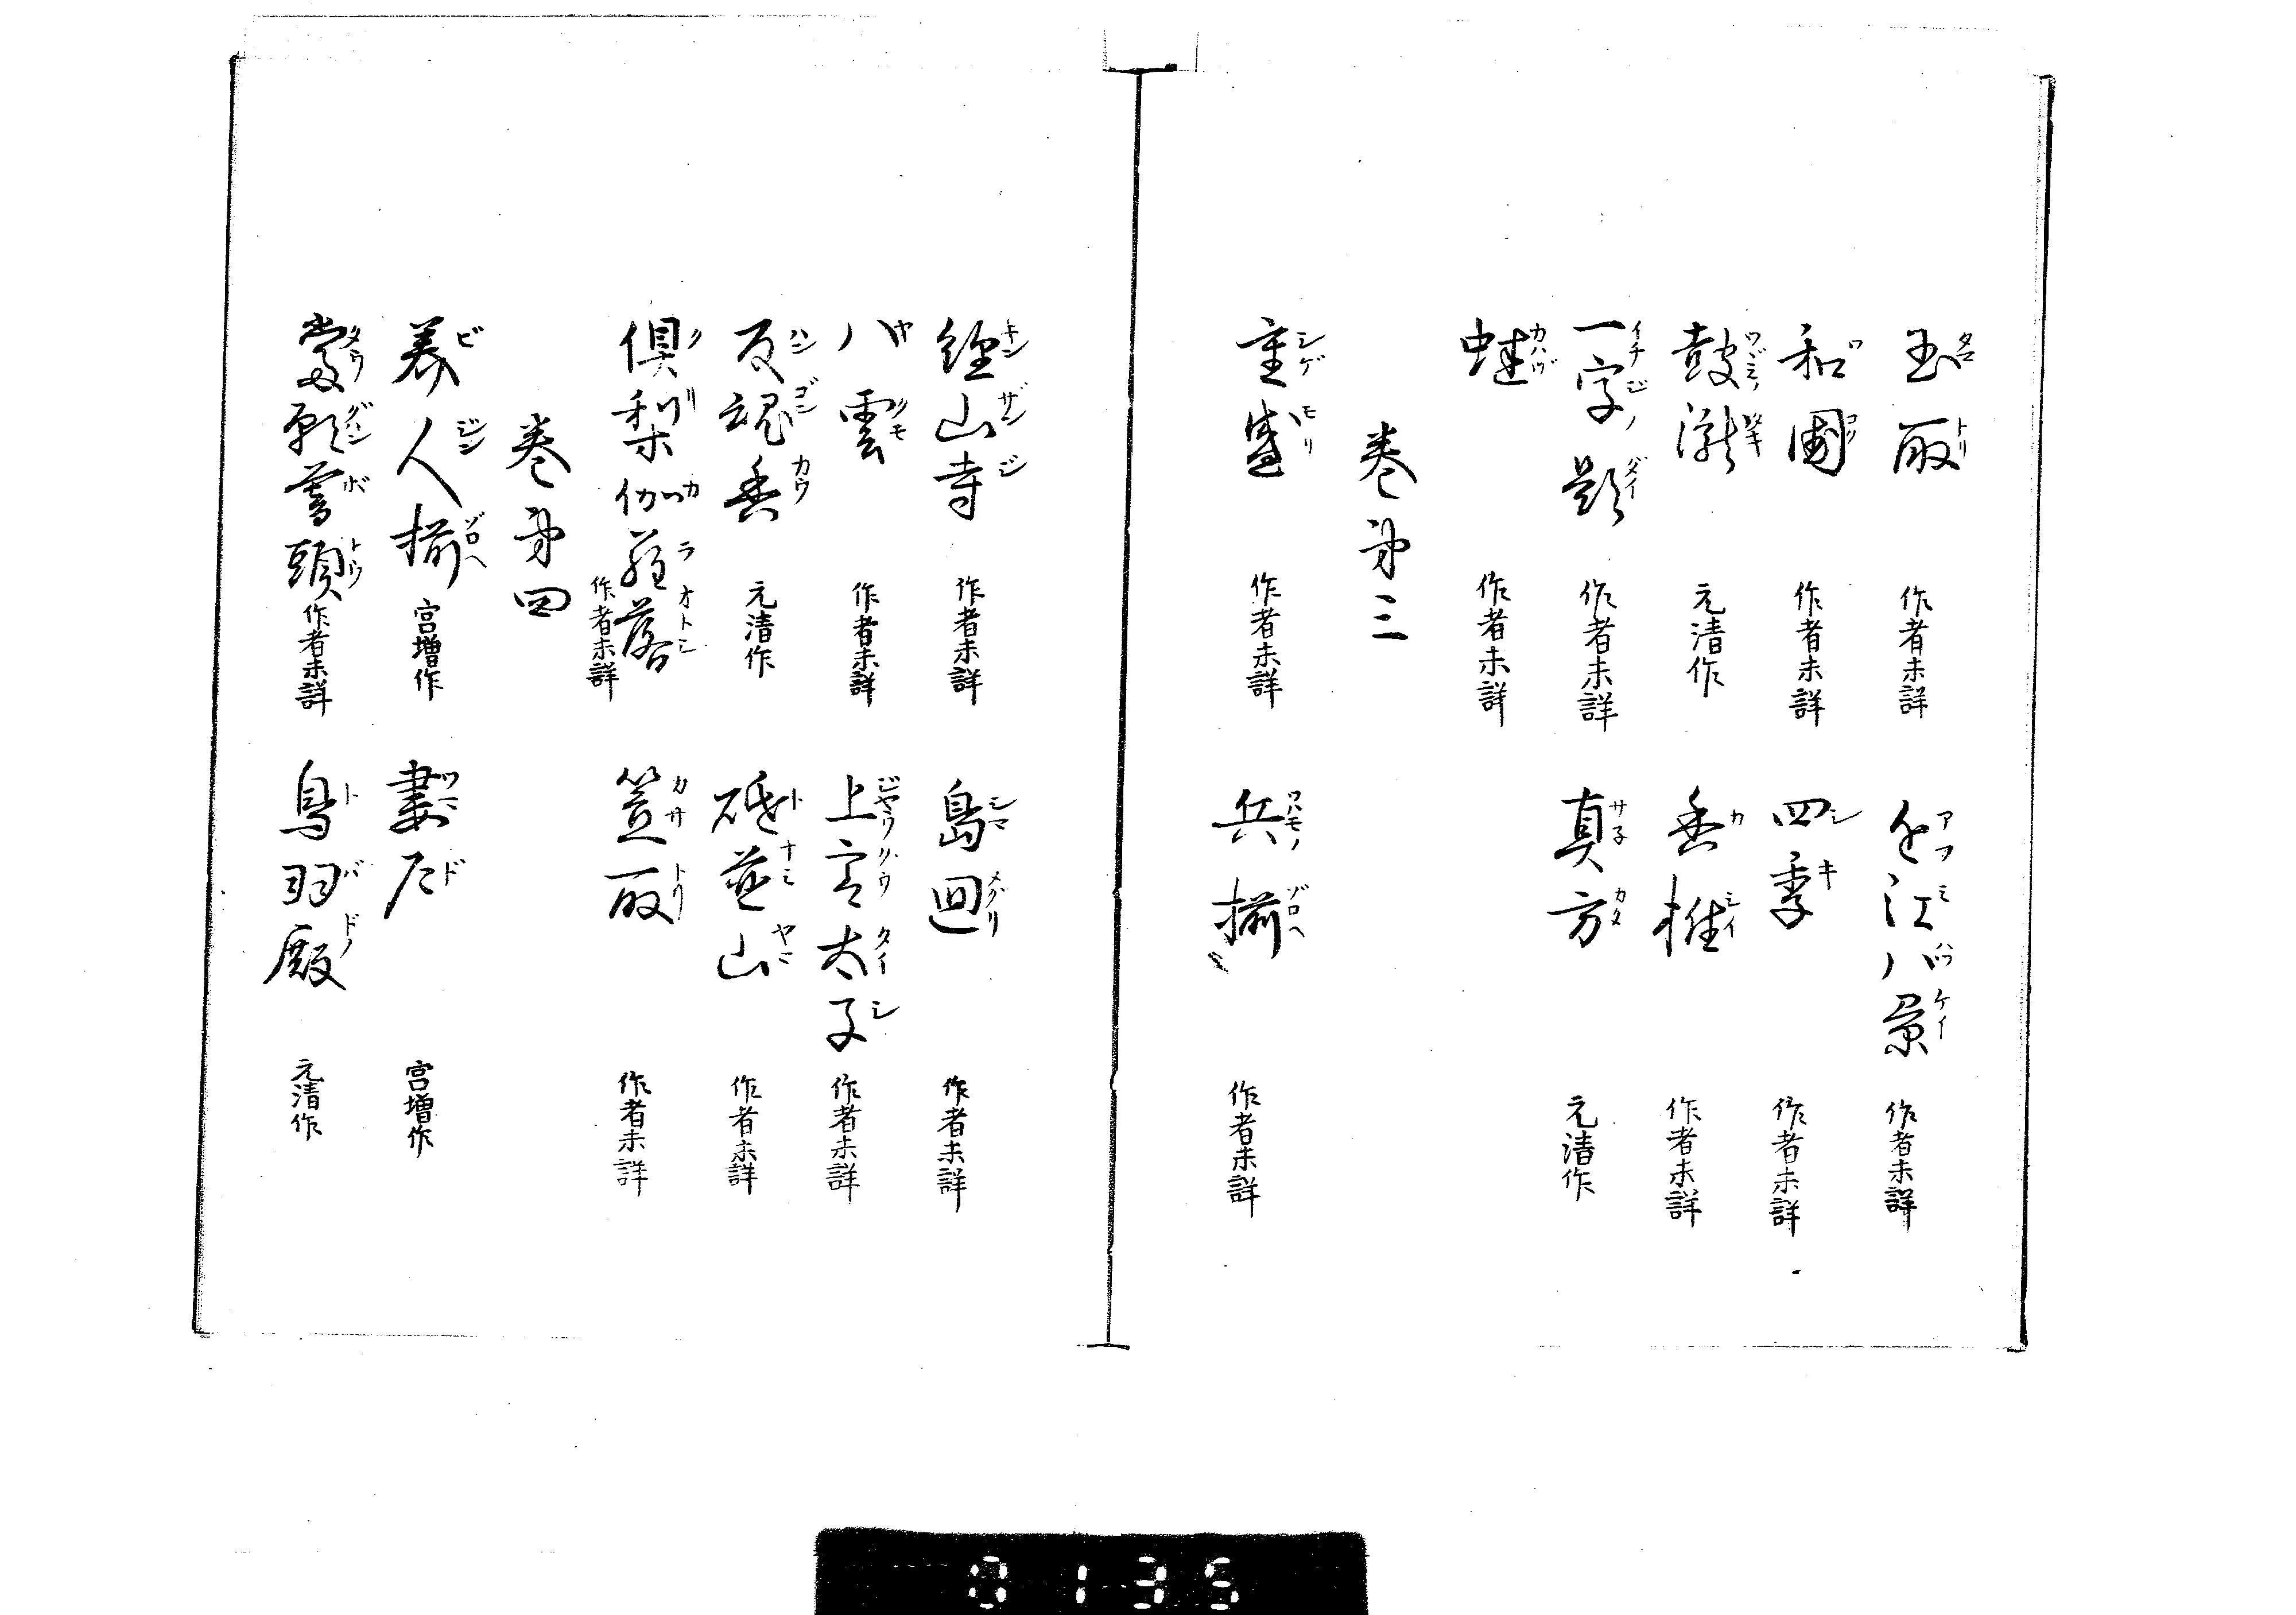 玉取 作者未詳 近江八景 作者未詳
和國 作者未詳 四季 作者未詳
鼓瀧 元清作 香椎 作者未詳
一字題 作者未詳 真方 元清作
蛙 作者未詳
巻第三
重盛 作者未詳 兵揃 作者未詳
径山寺 作者未詳 島廻 作者未詳
八雲 作者未詳 上宮太子 作者未詳
反魂香 元清作 砥並山 作者未詳
倶梨伽羅落 作者未詳 笠取 作者未詳
巻第四
美人揃 宮増作 妻戸 宮増作
當願暮頭 作者未詳 鳥羽殿 元清作
0135